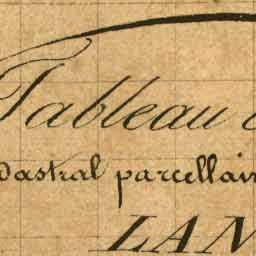 Tableau d
dastral parcellair
LAN